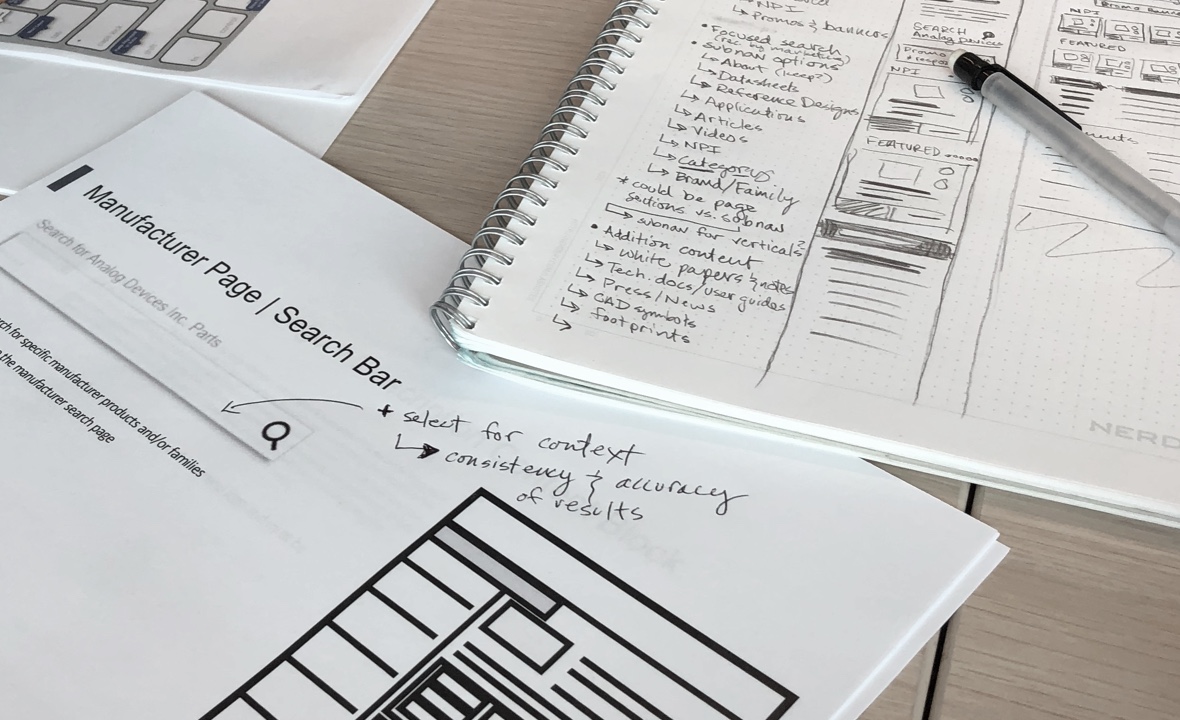 Manufacturer Page | Search Bar
Search for Analog Devices Inc. Parts
for specific manufacturer products and/or families
the manufacturer search page
* select for context
↳ consistency & accuracy
of results
↳ NPI
↳ Promos & banners
• Focused search
(rec by marketing)
• subnav options
↳ About (keep?)
↳ Datasheets
↳ Reference Designs
↳ Applications
↳ Articles
↳ Videos
↳ NPI
↳ Categorys
↳ Brand/Family
* could be page
sections vs. subnav
↳ subnav for verticals?
• Addition content
↳ white papers & notes
↳ Tech. docs/user guides
↳ Press/News
↳ CAD symbols
↳ footprints
↳
SEARCH
Analog Devices
Promo
NPI
FEATURED
Promo Banner
NPI
FEATURED
NERD